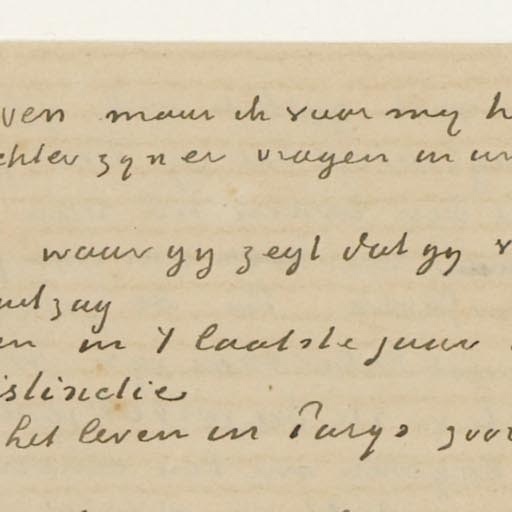 ven maar ik voor my h
chter zyn er vragen in uw
waar gy zegt dat gy v
zag
en in 't laatste jaar
istinctie
het leven in Parys